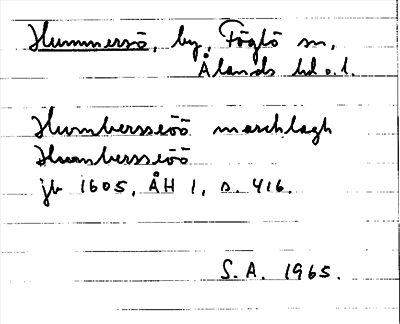 Hummersö, by, Föglö sn,
Ålands hd o. l.
Humbersseöö marchlagh
Humbersseöö
jb 1605, ÅH 1, s. 416.
S.A. 1965.